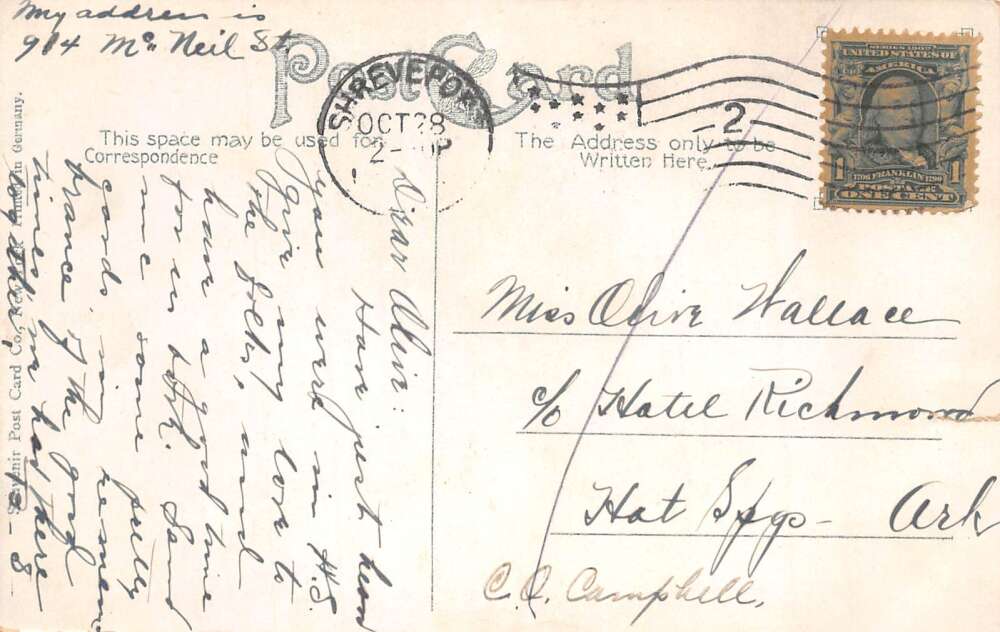 My address is
914 McNeil St.
Post Card
SHREVEPORT
OCT 28
2
SERIES 1902
UNITED STATES OF
AMERICA
1 1706 FRANKLIN 1790 1
POSTAGE
ONE CENT
This space may be used for
Correspondence
The Address only to be
Written Here.
Dear Olive:
Have just heard
you were in H.S.
Give my love to
the folks, and
have a good time
for us both. Send
me some pretty
cards in remem
brance of the good
times we had there
Miss Olive Wallace
c/o Hotel Richmond
Hot Spgs - Ark
C.O. Campbell.
Souvenir Post Card Co., New York Printed in Germany.